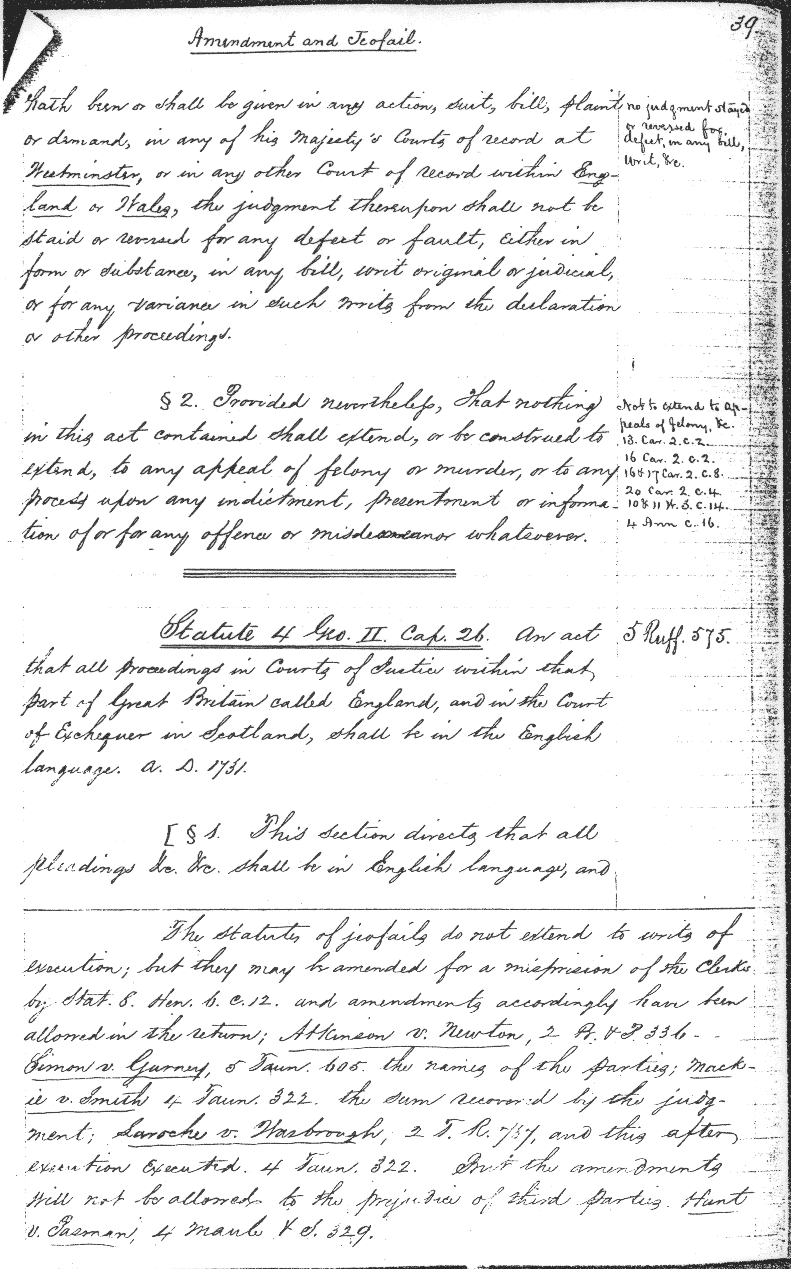 39
Amendment and Jeofail.
hath been or shall be given in any action, suit, bill, plaint
or demand, in any of his Majesty's Courts of record at
Westminster, or in any other Court of record within Eng-
land or Wales, the judgment thereupon shall not be
staid or reversed for any defect or fault, either in
form or substance, in any bill, writ original or judicial,
or for any variance in such writs from the declaration
or other proceedings.
no judgment stayed
or reversed for
defect, in any bill,
writ, &c.
§ 2. Provided nevertheless, that nothing
in this act contained shall extend, or be construed to
extend, to any appeal of felony or murder, or to any
process upon any indictment, presentment or informa-
tion of or for any offence or misdemeanor whatsoever.
Not to extend to ap-
peals of felony, &c.
13. Car. 2. c. 2.
16 Car. 2. c. 2.
16 & 17 Car. 2. c. 8.
20 Car. 2. c. 4.
10 & 11 W. 3. c. 14.
4 Ann c. 16.
Statute 4 Geo. II. Cap. 26. An act
that all proceedings in Courts of Justice within that
part of Great Britain called England, and in the Court
of Exchequer in Scotland, shall be in the English
language. A. D. 1731.
5 Ruff. 575.
[ § 1. This section directs that all
pleadings &c. &c. shall be in English language, and
The statutes of jeofails do not extend to writs of
execution; but they may be amended for a misprision of the Clerks
by Stat. 8. Hen. 6. c. 12. and amendments accordingly have been
allowed in the return; Atkinson v. Newton, 2 B. & P. 336.
Simon v. Gurney, 5 Taun. 605. the names of the parties; Mack-
ie v. Smith 4 Taun. 322. the sum recovered by the judg-
ment; Laroche v. Wasbrough, 2 T. R. 737, and this after
execution executed. 4 Taun. 322. But the amendments
will not be allowed to the prejudice of third parties. Hunt
v. Pasman, 4 Maule & S. 329.